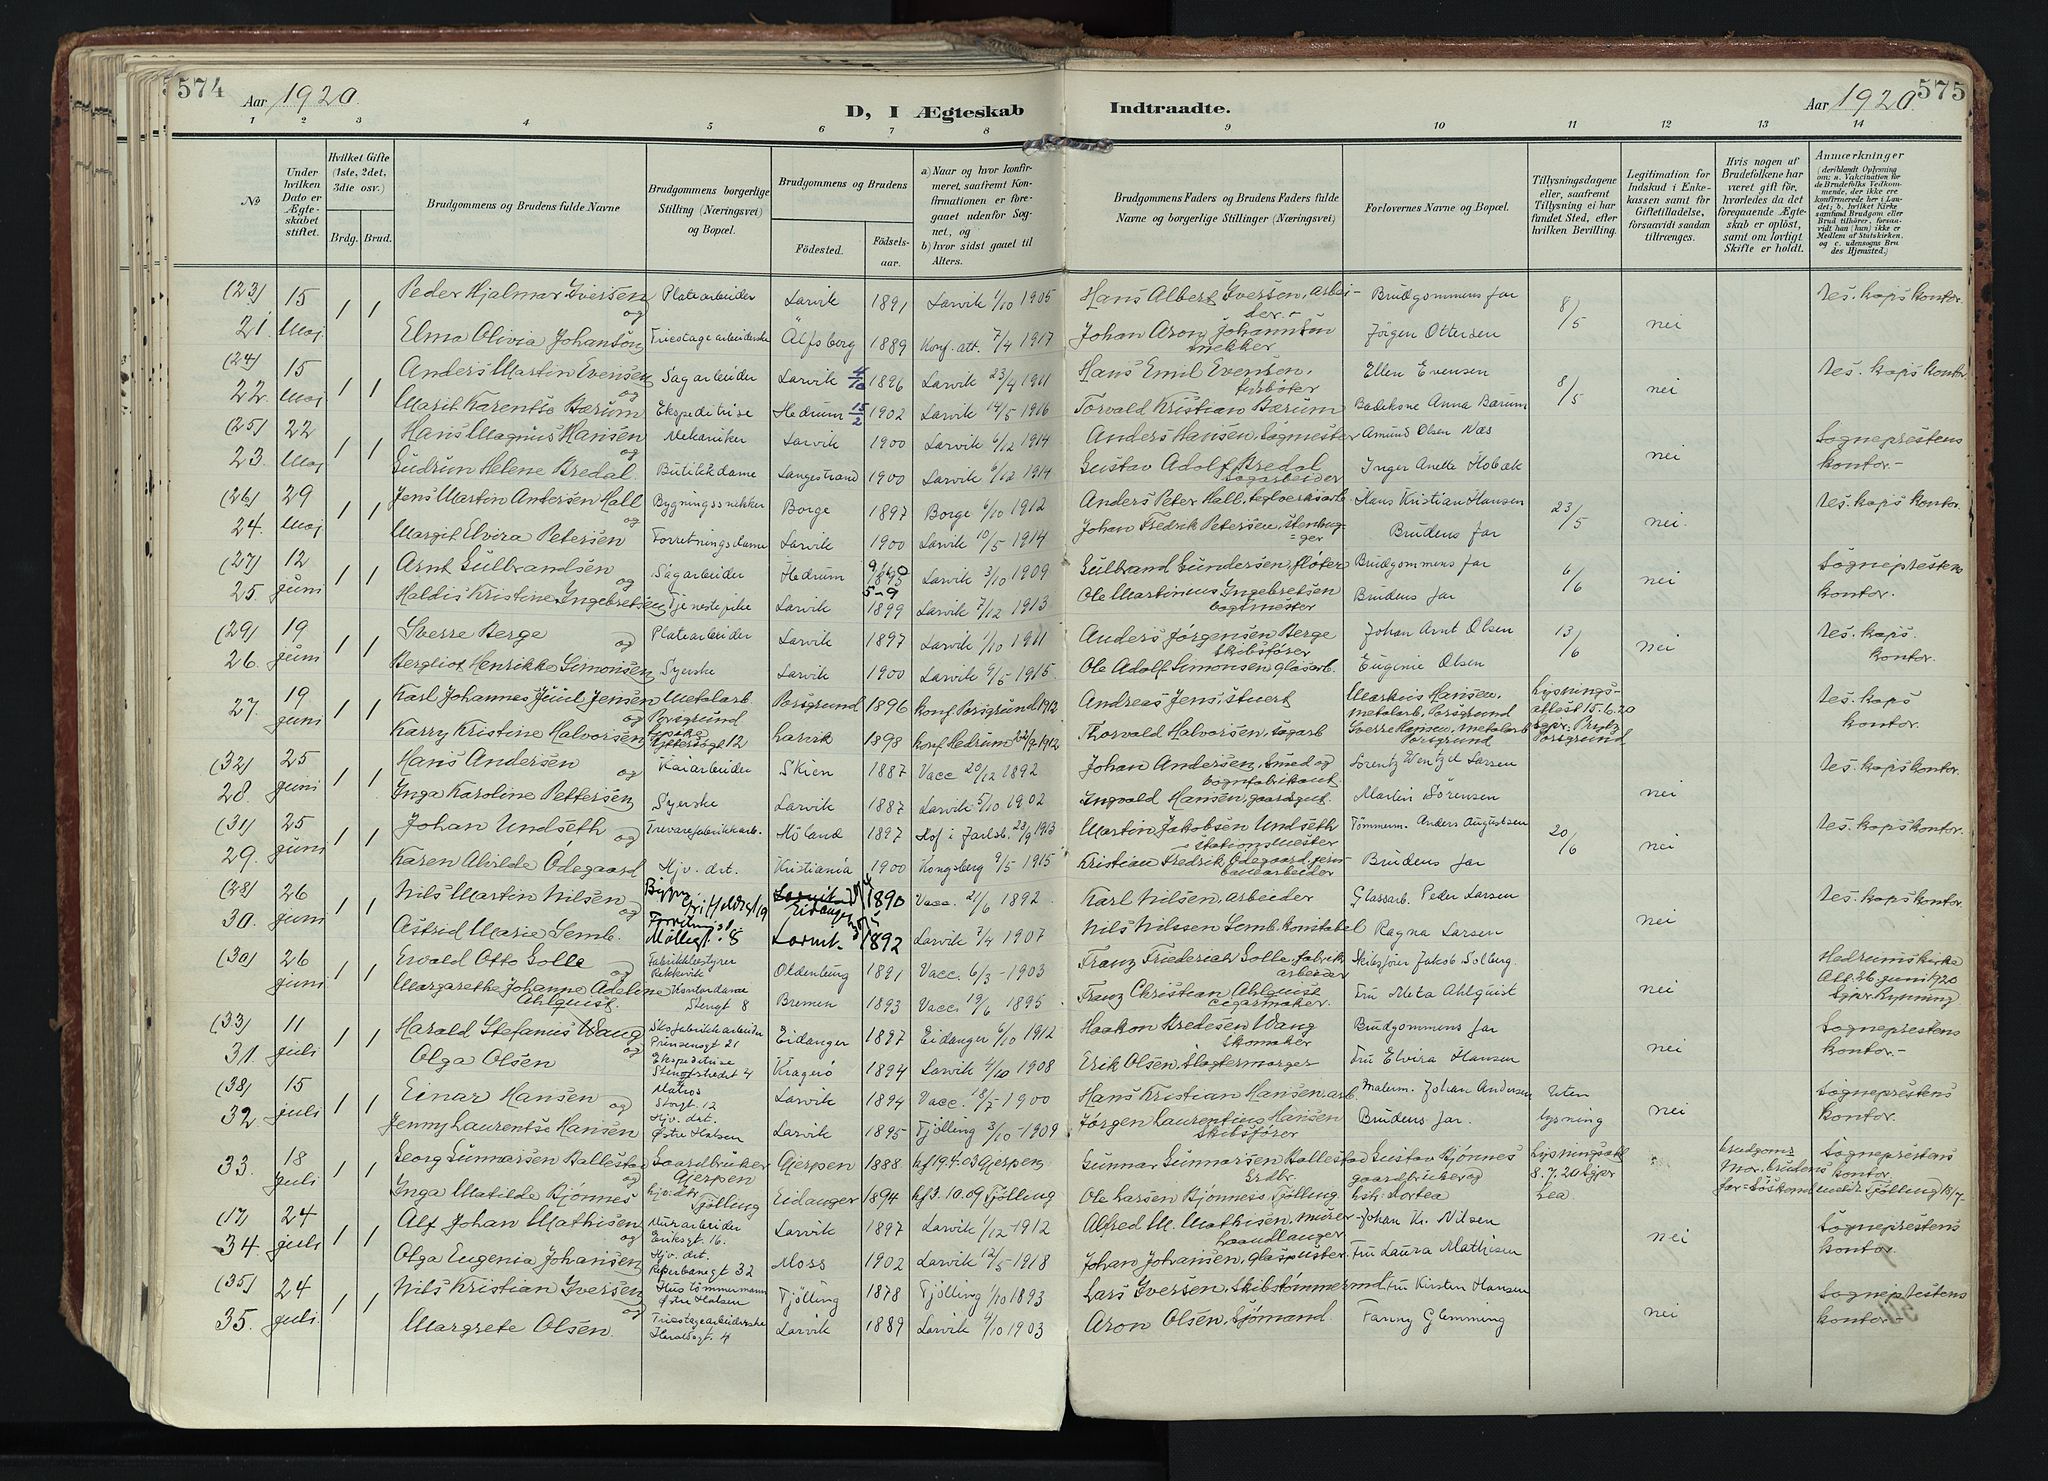 574
Aar 1920.
D, I Ægteskab Indtraadte.
Aar 1920.
575
1 2 3 4 5 6 7 8 9 10 11 12 13 14
No
Under hvilken Dato er Ægteskabet stiftet.
Hvilket Gifte (1ste, 2det, 3die osv.)
Brdg. Brud.
Brudgommens og Brudens fulde Navne
Brudgommens borgerlige Stilling (Næringsvei) og Bopæl.
Brudgommens og Brudens
Fødested.
Fødselsaar.
a) Naar og hvor konfirmeret, saafremt Konfirmationen er foregaaet udenfor Sognet, og
b) hvor sidst gaaet til Alters.
Brudgommens Faders og Brudens Faders fulde Navne og borgerlige Stillinger (Næringsvei)
Forlovernes Navne og Bopæl.
Tillysningsdagene eller, saafremt Tillysning ei har fundet Sted, efter hvilken Bevilling.
Legitimation for Indskud i Enkekassen samt for Giftetilladelse, forsaavidt saadan tiltrænges.
Hvis nogen af Brudefolkene har været gift før, hvorledes da det foregaaende Ægteskab er opløst, samt om lovligt Skifte er holdt.
Anmærkninger
(deriblandt Oplysning om: a. Vaccination for de Brudefolks Vedkommende, der ikke ere konfirmerede her i Landet; b. hvilket Kirkesamfund Brudgom eller Brud tilhører, forsaavidt han (hun) ikke er Medlem af Statskirken, og c. udensogns Brudes Hjemsted.)
(23) 15 1 1 Peder Hjalmar Iversen og Platearbeider Larvik 1891 Larvik 1/10 1905 Hans Albert Iversen, arbeider Brudgommens far 8/5 nei res. kaps kontor.
21. Maj Elma Olivia Johanson Triestagearbeiderske Älfsborg 1889 Konf. att. 7/4 1917 Johan Aron Johansson snekker Jørgen Ottersen
(24) 15 1 1 Anders Martin Evensen og Sagarbeider Larvik 4/10 1896 Larvik 23/4 1911 Hans Emil Evensen, fyrbøter Ellen Evensen 8/5 nei res. kaps kontor
22. Maj Marit Karentse Bærum Ekspeditrise Hedrum 15/2 1902 Larvik 14/5 1916 Torvald Kristian Bærum Badekone Anna Bærum
(25) 22 1 1 Hans Magnus Hansen og Mekaniker Larvik 1900 Larvik 6/12 1914 Anders Hansen, Sagmester Amund Olsen Næs nei Sogneprestens kontor.-
23. Maj Gudrun Helene Bredal. Butikkdame Langestrand 1900 Larvik 6/12 1914 Gustav Adolf Bredal Sagarbeider Inger Anette Holbæk
(26) 29 1 1 Jens Martin Andersen Hall og Bygningssnekker Borge 1897 Borge 6/10 1912 Anders Peter Hall, teglverksarb. Hans Kristian Hansen 23/5 nei. res. kaps kontor.
24. Maj Margit Elvira Petersen Forretningsdame Larvik 1900 Larvik 10/5 1914 Johan Fredrik Petersen, stenhugger Brudens far
(27) 12 1 1 Arnt Gulbrandsen og Sagarbeider Hedrum 1895 Larvik 3/10 1909 Gulbrand Gundersen, fløter Brudgommens far 6/6 nei Sogneprestens kontor.
25. juni Haldis Kristine Ingebretsen Tjenestepike Larvik 5-9 1899 Larvik 7/12 1913 Ole Martinius Ingebretsen Brudens far
(29) 19 1 1 Sverre Berge og Platearbeider Larvik 1897 Larvik 1/10 1911 Anders Jørgensen Berge Skibsfører Johan Arnt Olsen 13/6 nei res. kaps. kontor.
26. juni Bergliot Henrikke Simonsen Syerske Larvik 1900 Larvik 9/5 1915. Ole Adolf Simonsen, glasarb. Eugenie Olsen
19 1 1 Karl Johannes Juul Jensen og Metalarb Porsgrund Porsgrund 1896 konf Porsgrund 1912 Andreas Jens, stuert Markus Hansen, metalarb. Porsgrund Lysningsattest 15.6.20 sgpr. Porsgrund res. kaps kontor.
27. juni Karry Kristine Halvorsen 12 Larvik 1898 konf Hedrum 22/9 1912 Thorvald Halvorsen, sagarb Sverre Hansen, metalarb Porsgrund
(32) 25 1 1 Hans Andersen og Kaiarbeider Skien 1887 Vacc 20/12 1892 Johan Andersen, smed og vognfabrikant Lorentz Wentzel Larsen nei res. kaps kontor.
28. juni Inga Karoline Pettersen Syerske Larvik 1887 Larvik 5/10 1902 Ingvald Hansen, gaardsgut. Martin Sørensen
(31) 25 1 1 Johan Undseth og Trevarefabrikkarb. Høland 1897 Hof i Jarlsb. 23/9 1913 Martin Jakobsen Undseth stationsmester Tømmerm. Anders Augustsen 20/6 nei res. kaps kontor.
29. juni Karen Alvilde Ødegaard Hjv. drt. Kristiania 1900 Kongsberg 9/5 1915 Kristian Fredrik Ødegaard, jernbanearbeider Brudens far
(28) 26 1 1 Nils Martin Nilsen og Eidanger 1890 Vacc. 21/6 1892. Karl Nilsen, arbeider Glassarb. Peder Larsen nei res. kaps kontor.
30. juni Astrid Marie Semb. Møllegt. 8 Larvik 1892 Larvik 7/4 1907 Nils Nilssen Semb. konstabel Ragna Larsen
(30) 26 1 1 Ewald Otto Golle og Fabrikkbestyrer Rekkevik Oldenburg 1891 Vacc. 6/3-1903 Franz Friederich Golle, fabrikarbeider Skibsfører Jakob Solberg. nei Hedrumskirke Att. 26. juni 1920
juni Margarethe Johanne Adeline Ahlquist Kontordame Stengt 8 Bremen 1893 Vacc. 19/6 1895. Franz Christian Ahlquist cigarmaker. Fru Meta Ahlquist
(33) 11 1 1 Harald Stefanus Wang og Skofabrikkarbeider Prinsensgt 21 Eidanger 1897 Eidanger 6/10 1912 Haakon Bredesen Wang skomaker Brudgommens far nei Sogneprestens kontor.-
31. juli Olga Olsen Ekspeditrise 4 Kragerø 1894 Larvik 4/10 1908 Erik Olsen, Slagtermarger Fru Elvira Hansen
(38) 15 1 1 Einar Hansen og Matros Storgt. 12 Larvik 1894 Vacc. 18/7-1900 Hans Kristian Hansen, arb. Malerm. Johan Andersen Uten lysning nei Sogneprestens kontor.
32. juli Jenny Laurentse Hansen Hjv. drt. Østre Halsen Larvik 1895 Tjølling 3/10-1909 Jørgen Laurentius Hansen Skibsfører Brudens far.
18 1 1 Georg Gunnarsen Ballestad og Gaardbruker Gjerpen Gjerpen 1888 kf 19.4.03 Gjerpen Gunnar Gunnarsen Ballestad Grdbr. Gustav Bjønnes gaardbruker og Lysningsatt. 8.7.20 Sgpr Lea " brudgoms mor, brudens far = Søskend Sogneprestens kontor
33. juli Inga Matilde Bjønnes hjv. dtr. Tjølling Eidanger 1894 kf 3.10.09 Tjølling Ole Larsen Bjønnes, Tjølling
(17) 24 1 1 Alf Johan Mathisen og Murarbeider Eriksgt. 16. Larvik 1897 Larvik 1/12-1912 Alfred M. Mathisen, murer haandlanger Johan Kr. Nilsen nei Sogneprestens kontor.
34. juli Olga Eugenia Johansen Hjv. drt. Reperbanegt 32 Moss 1902 Larvik 12/5-1918 Johan Johansen, glaspuster. Fru Laura Mathisen
(35) 24 1 1 Nils Kristian Iversen og Hustømmermann Østre Halsen Tjølling 1878 Tjølling 1/10 1893 Lars Iversen, Skibstømmermd Fru Kirsten Hansen nei Sogneprestens kontor.-
35. juli. Margrete Olsen. Triestagearbeiderske Haraldsgt. 4 Larvik 1889 Larvik 4/10 1903 Aron Olsen, Sjømand. Fanny Glemming